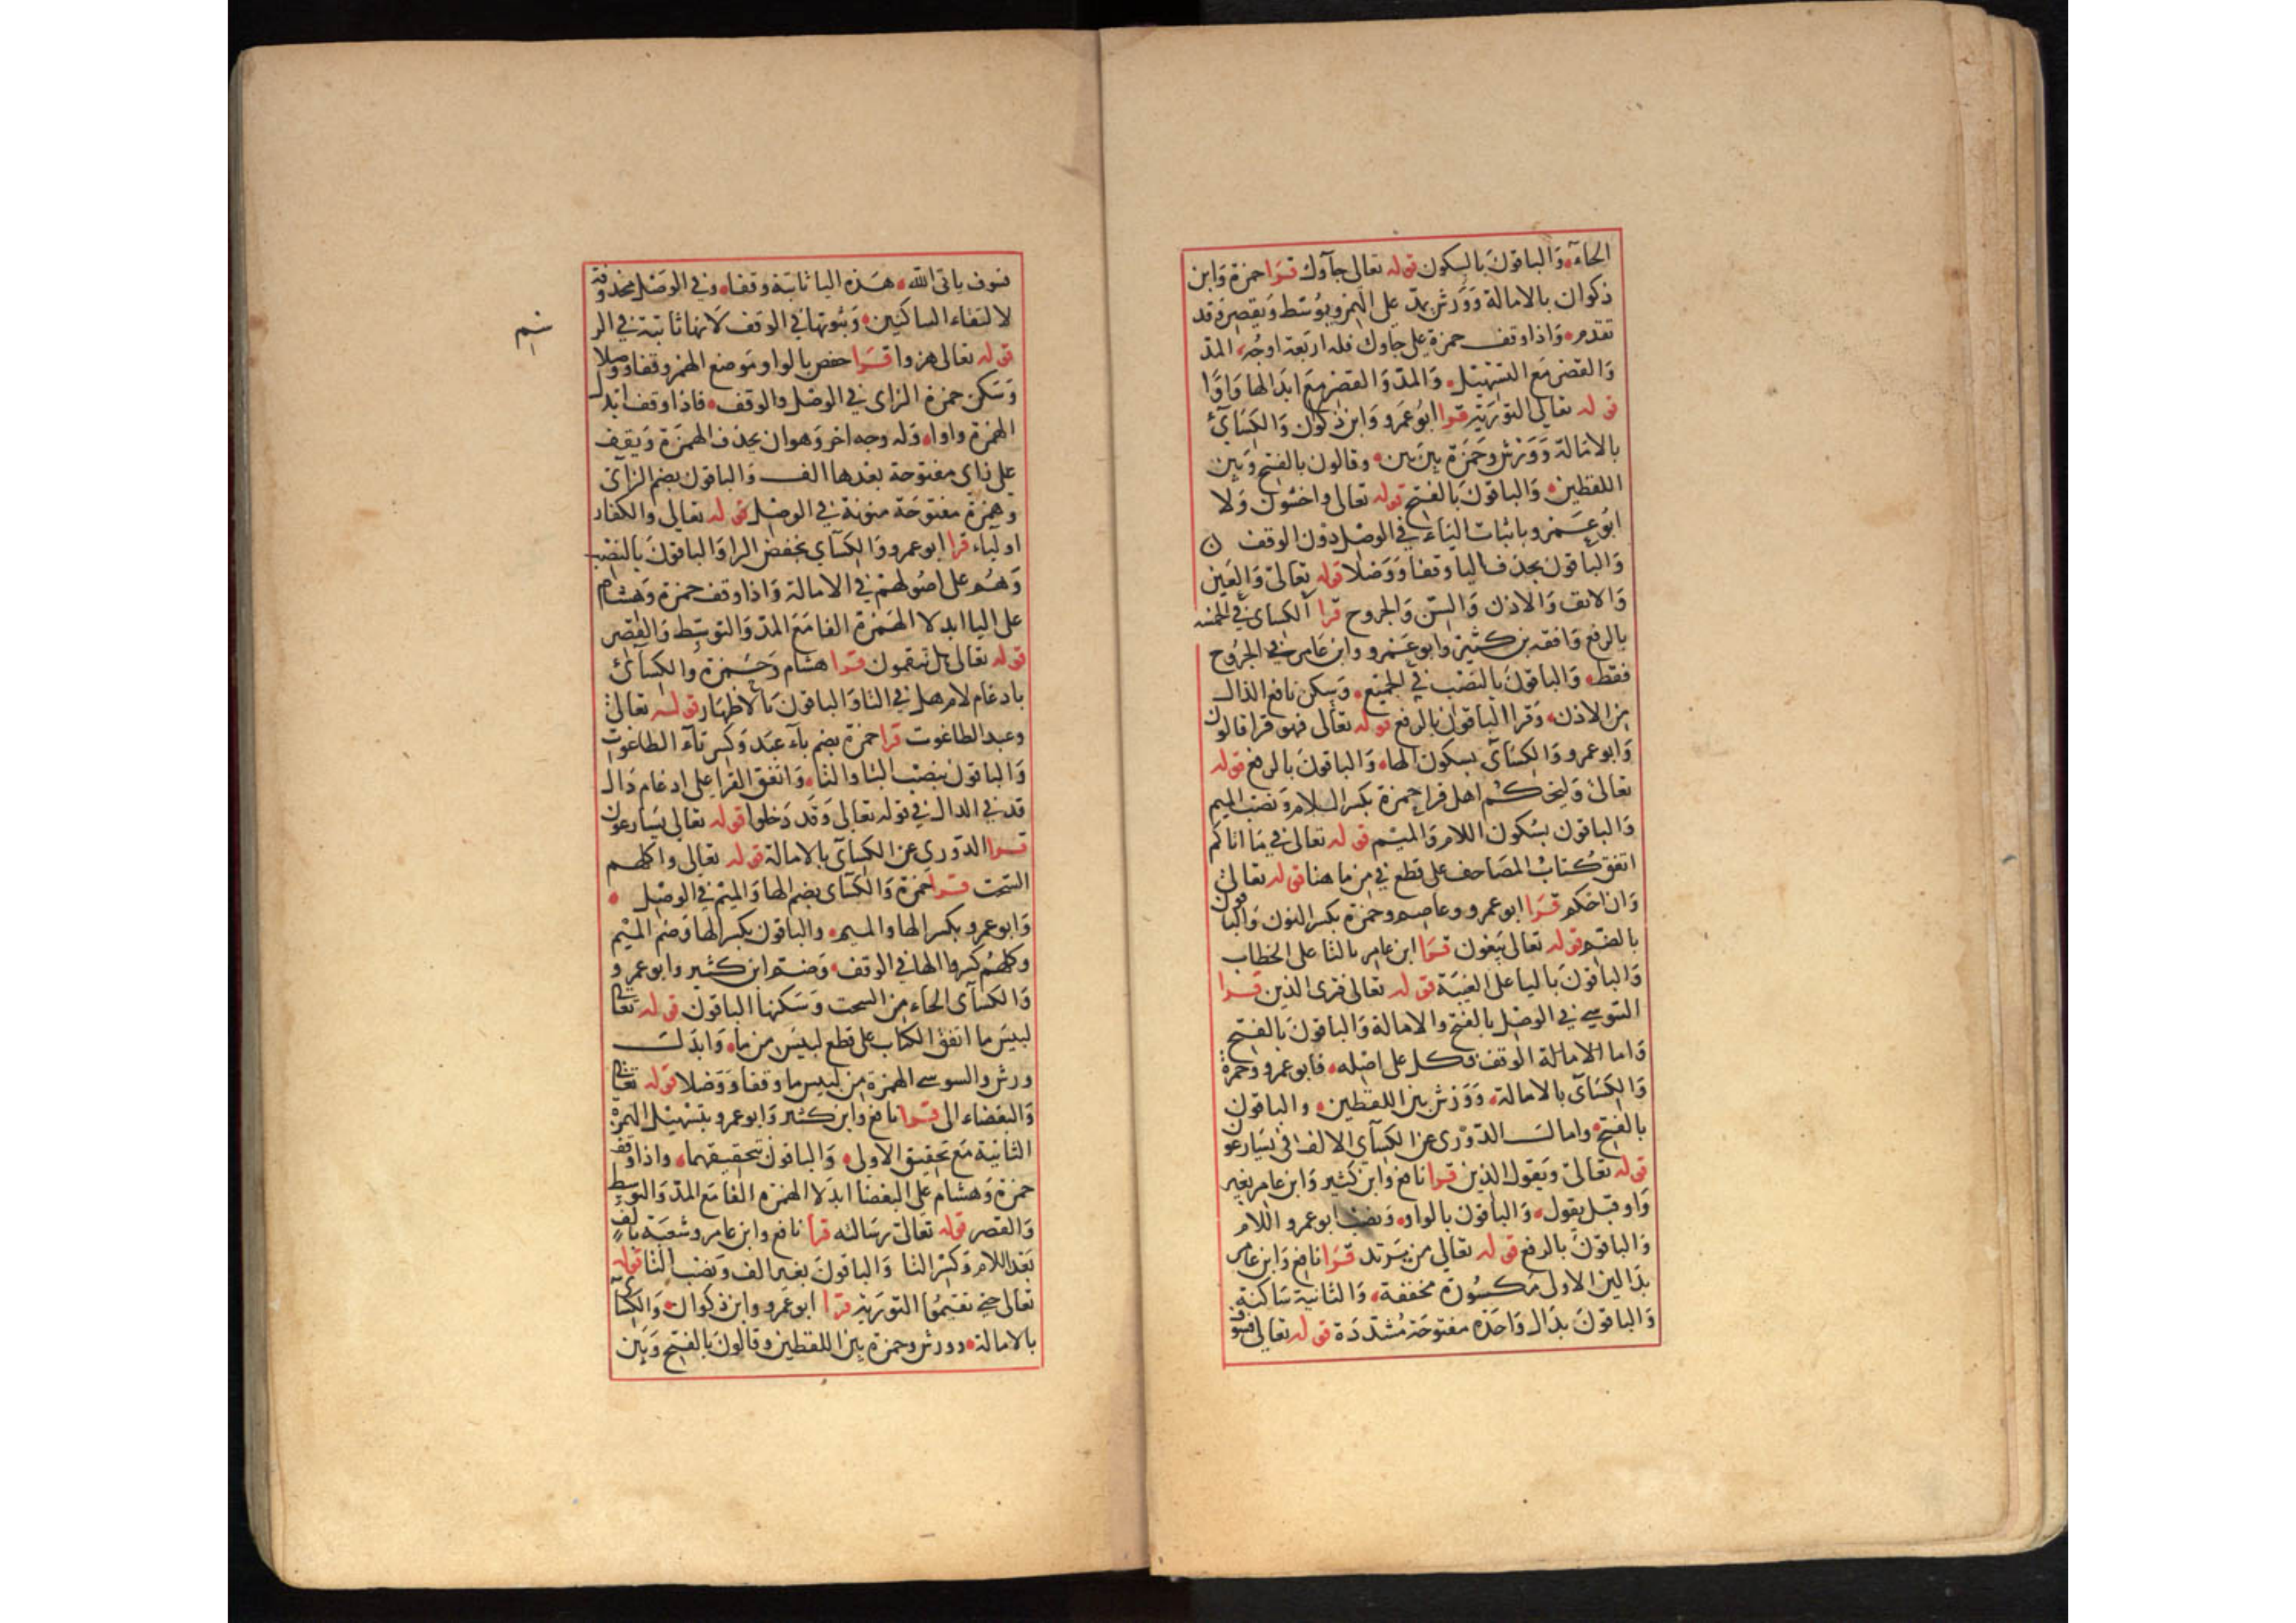 الحاء والباقون بالسكون قوله تعالى جآوك قرا حمزة وابن
ذكوان بالامالة وورش بمد على الهمز ويوسط ويقصر وقد
تقدم واذا وقف حمزة على جاوك فله اربعة اوجه المد
والقصر مع التسهيل والمد والقصر مع ابدالها واوا
قوله تعالى التورية قرا ابو عمرو وابن ذكوان والكسائ
بالامالة وورش وحمزة بين بين وقالون بالفتح وبين
اللفظين والباقون بالفتح قوله تعالى واخشون ولا
ابو عمرو باثبات الياء في الوصل دون الوقف
والباقون بحذف اليا وقفا ووصلا قوله تعالى والعين
والانف والاذن والسن والجروح قرا الكساى في الخمسه
بالرفع وافقه بن كثير وابو عمرو وابن عامر في الجروح
فقط والباقون بالنصب في الجميع وسكن نافع الذال
من الاذن وقرا الباقون بالرفع قوله تعالى فهو قرا قالون
وابو عمرو والكسآى بسكون الها والباقون بالرفع قوله
تعالى وليحكم اهل قرا حمزة بكسر اللام ونصب الميم
والباقون بسكون اللام والميم قوله تعالى في ما اتاكم
اتفق كتاب المصاحف على قطع في من ما هنا قوله تعالى
وان احكم قرا ابو عمرو وعاصم وحمزة بكسر النون والباقون
بالضم قوله تعالى يبغون قرا ابن عامر بالتا على الخطاب
والباقون باليا على الغيبة قوله تعالى فترى الذين قرا
السوسي في الوصل بالفتح والامالة والباقون بالفتح
واما الامالة الوقف فكل على اصله فابو عمرو وحمزة
والكسآى بالامالة وورش بين اللفظين والباقون
بالفتح وامالت الدورى عن الكسآى الالف في يسارعون
قوله تعالى ويقول الذين قرا نافع وابن كثير وابن عامر بغير
واو قبل يقول والباقون بالواو ونصب ابو عمرو اللام
والباقون بالرفع قوله تعالى من يرتد قرا نافع وابن عامر
بدالين الاولى مكسورة مخففة والثانية ساكنة
والباقون بدال واحده مفتوحة مشددة قوله تعالى فسوف
فسوف ياتى الله هذه اليا ثابتة وقفا وفي الوصل محذوفة
لالتقاء الساكنين وثبوتها في الوقف لانها ثابتة في الر
سم
قوله تعالى هزوا قرا حفص بالواو موضع الهمز وقفا ووصلا
وسكن حمزة الزاى في الوصل والوقف فاذا وقف ابدل
الهمزة واوا وله وجه اخر وهو ان يحذف الهمزة ويقف
على زاى مفتوحة بعدها الف والباقون بضم الزآى
وهمزة مفتوحة منونة في الوصل قوله تعالى والكفار
اولياء قرا ابو عمرو والكسآى بخفض الرا والباقون بالنصب
وهم على اصولهم في الامالة واذا وقف حمزة وهشام
على اليا ابدلا الهمزة الفا مع المد والتوسط والقصر
قوله تعالى هل تنقمون قرا هشام وحمزة والكسآئ
بادغام لام هل في التا والباقون بالاظهار قوله تعالى
وعبد الطاغوت قرا حمزة بضم بآء عبد وكسر تآء الطاغوت
والباقون بنصب البا والتا واتفق القرا على ادغام دال
قد في الدال في قوله تعالى وقد دخلوا قوله تعالى يسارعون
قرا الدوري عن الكسآى بالامالة قوله تعالى واكلهم
السحت قرا حمزة والكسآى بضم الها والميم في الوصل
وابو عمرو بكسر الها والميم والباقون بكسر الها وضم الميم
وكلهم كسروا الها في الوقف وضم ابن كثير وابو عمرو
والكسآى الحاء من السحت وسكنها الباقون قوله تعالى
لبيس ما اتفق الكتاب على قطع لبيس من ما وابدلت
ورش والسوسي الهمزة من لبيس ما وقفا ووصلا قوله تعالى
والبغضاء الى قرا نافع وابن كثير وابو عمرو بتسهيل الهمزة
الثانية مع تحقيق الاولى والباقون بتحقيقهما واذا وقف
حمزة وهشام على البغضا ابدلا الهمزه الفا مع المد والتوسط
والقصر قوله تعالى رسالته قرا نافع وابن عامر وشعبة بالف
بعد اللام وكسر التا والباقون بغير الف ونصب التا قوله
تعالى حتى تقيموا التورية قرا ابو عمرو وابن ذكوان والكسآى
بالامالة وورش وحمزة بين اللفظين وقالون بالفتح وبين